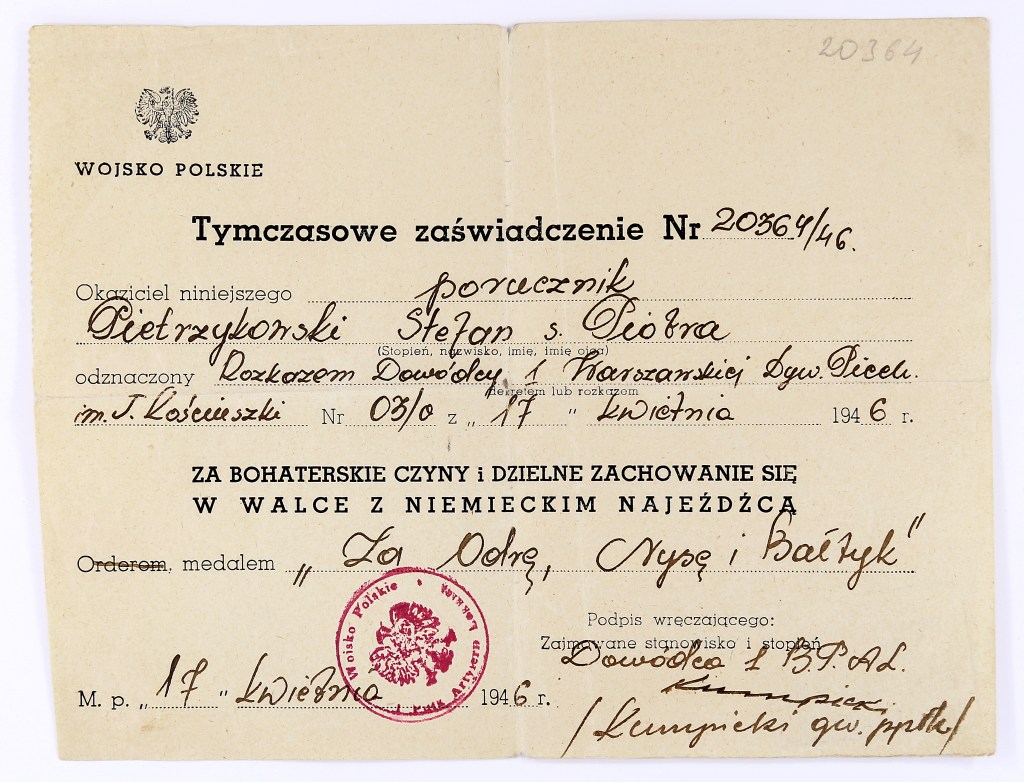 20364
WOJSKO POLSKIE
Tymczasowe zaświadczenie Nr 20364/46.
Okaziciel niniejszego porucznik
Pietrzykowski Stefan s. Piotra
(Stopień, nazwisko, imię, imię ojca)
odznaczony Rozkazem Dowódcy 1 Warszawskiej Dyw. Piech.
dekretem lub rozkazem
im. T. Kościuszki Nr 03/0 z „ 17 " kwietnia 1946 r.
ZA BOHATERSKIE CZYNY i DZIELNE ZACHOWANIE SIĘ
W WALCE Z NIEMIECKIM NAJEŹDŹCĄ
Orderem, medalem „Za Odrę, Nysę i Bałtyk"
Wojsko Polskie
1 Pułk Artylerii Lekkiej
Podpis wręczającego:
Zajmowane stanowisko i stopień
Dowódca 1 B.P.A.L.
M. p. „ 17 " kwietnia 1946 r.
Kumpicki
/Kumpicki gw. ppłk/